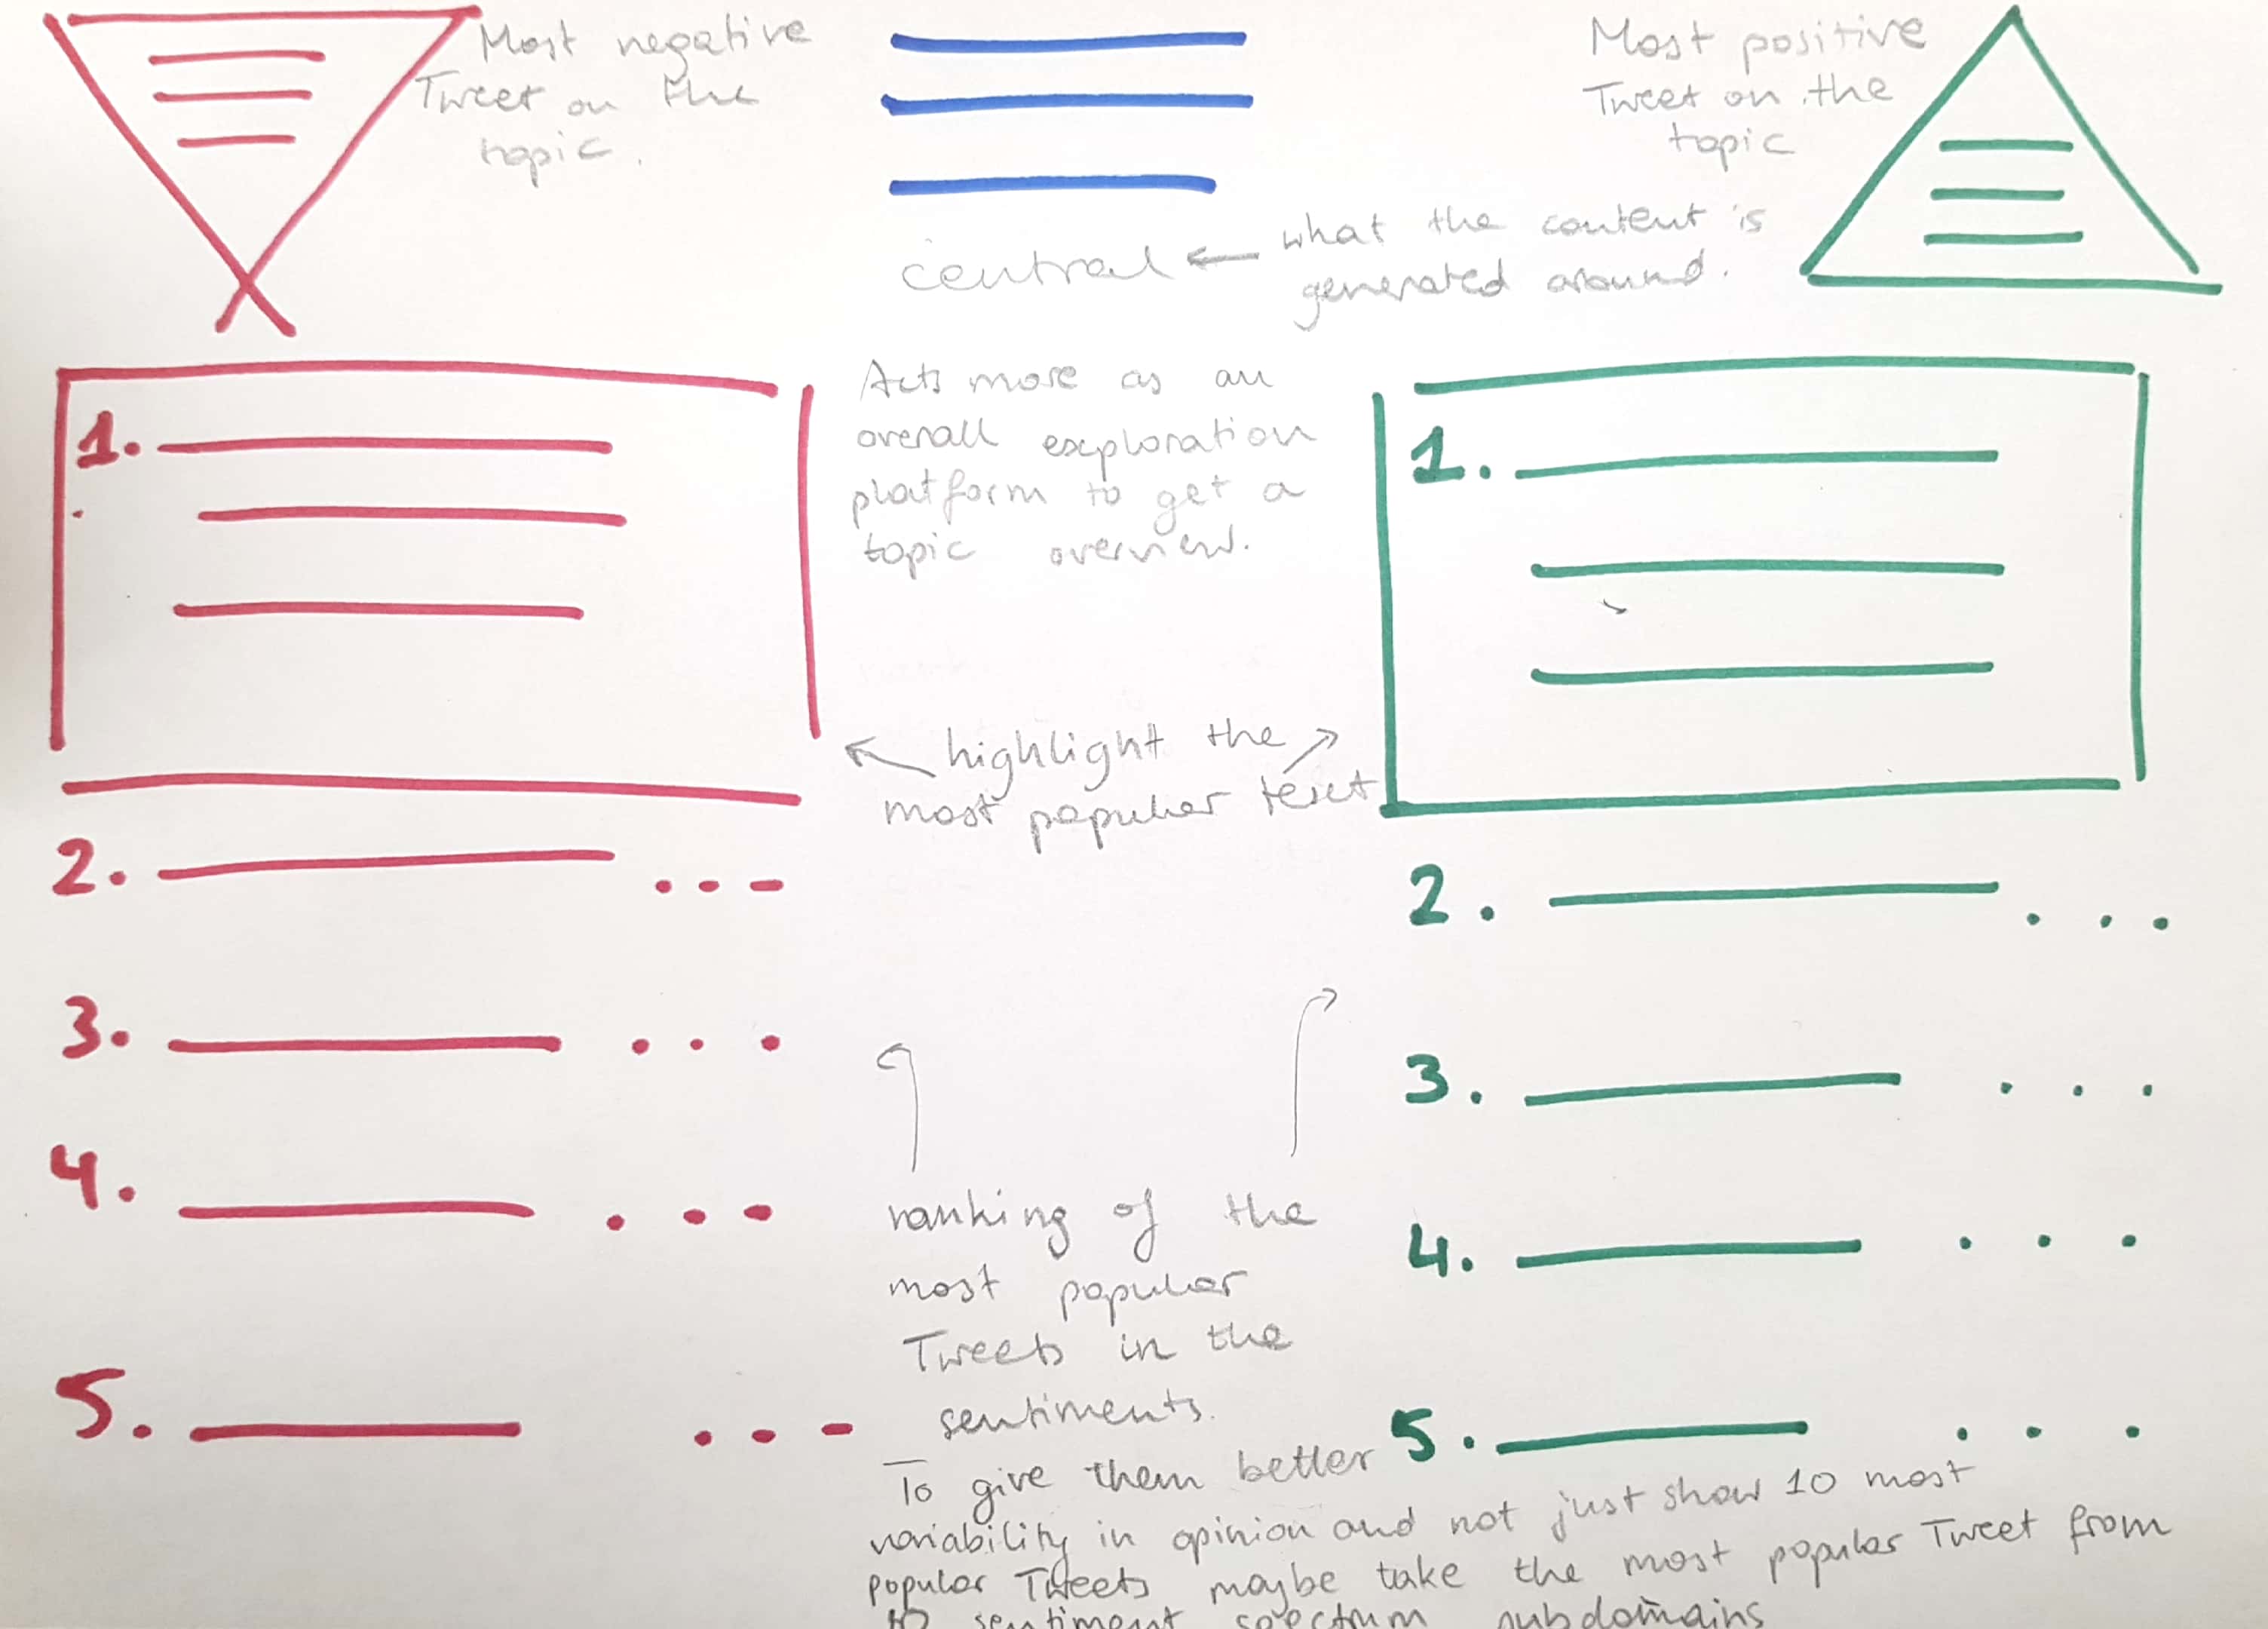 Most negative
Tweet on the
topic.
Most positive
Tweet on the
topic
central ← what the content is
generated around.
1.
Acts more as an
overall exploration
platform to get a
topic overview.
1.
highlight the
most popular text
2.
3.
4.
5.
2.
3.
4.
5.
ranking of the
most popular
Tweets in the
sentiments.
To give them better
variability in opinion and not just show 10 most
popular Tweets maybe take the most popular Tweet from
10 sentiment spectrum subdomains